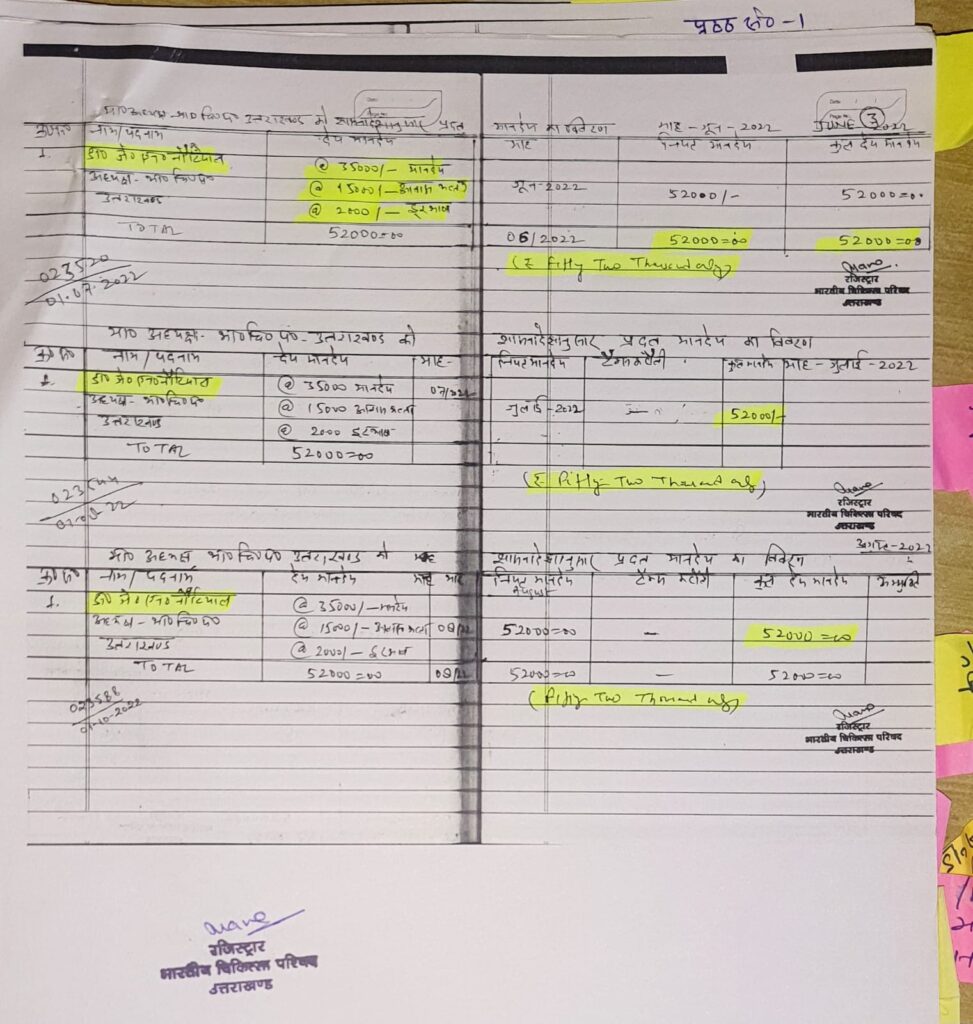 पृष्ठ सं० - 1
मा० अध्यक्ष - भा०चि०प० उत्तराखण्ड को शासनादेशानुसार प्रदत्त मानदेय का विवरण माह - जून - 2022 JUNE 3 2022
क्र०सं० नाम/पदनाम देय मानदेय माह नियत मानदेय कुल देय मानदेय
1. डा० जे० एन० नौटियाल @ 35000/- मानदेय
अध्यक्ष - भा०चि०प० @ 15000/- आवास भत्ता जून-2022 52000/- 52000=00
उत्तराखण्ड @ 2000/- दूरभाष
TOTAL 52000=00 06/2022 52000=00 52000=00
(₹ Fifty Two Thousand only)
023520
01.07.2022
रजिस्ट्रार
भारतीय चिकित्सा परिषद
उत्तराखण्ड
मा० अध्यक्ष - भा०चि०प० - उत्तराखण्ड को शासनादेशानुसार प्रदत्त मानदेय का विवरण
क्र०सं० नाम/पदनाम देय मानदेय माह- नियत मानदेय कुल मानदेय माह - जुलाई - 2022
1. डा० जे० एन० नौटियाल @ 35000 मानदेय 07/22
अध्यक्ष - भा०चि०प० @ 15000 आवास भत्ता जुलाई-2022 52000/-
उत्तराखण्ड @ 2000 दूरभाष
TOTAL 52000=00
(₹ Fifty Two Thousand only)
रजिस्ट्रार
भारतीय चिकित्सा परिषद
उत्तराखण्ड
मा० अध्यक्ष भा०चि०प० उत्तराखण्ड को शासनादेशानुसार प्रदत्त मानदेय का विवरण अगस्त-2022
क्र०सं० नाम/पदनाम देय मानदेय माह नियत मानदेय कुल देय मानदेय
1. डा० जे० एन० नौटियाल @ 35000/- मानदेय
अध्यक्ष - भा०चि०प० @ 15000/- आवास भत्ता 08/22 52000=00 - 52000=00
उत्तराखण्ड @ 2000/- दूरभाष
TOTAL 52000=00 08/22 52000=00 - 52000=00
(Fifty Two Thousand only)
023588
01-10-2022
रजिस्ट्रार
भारतीय चिकित्सा परिषद
उत्तराखण्ड
रजिस्ट्रार
भारतीय चिकित्सा परिषद
उत्तराखण्ड